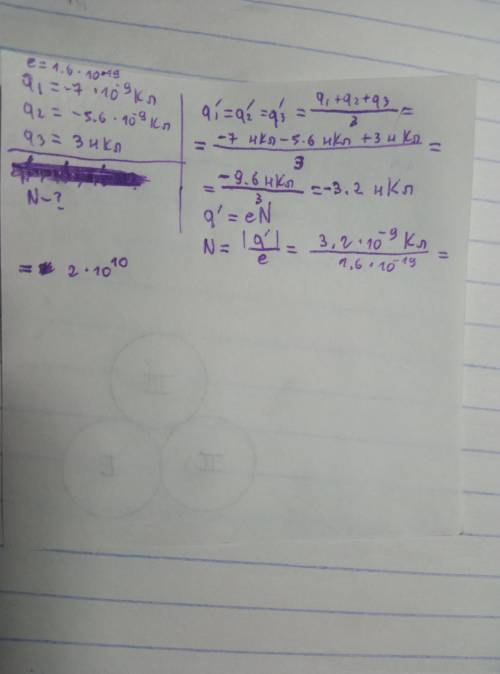 e = 1.6 · 10⁻¹⁹
q₁ = -7 · 10⁻⁹ Кл
q₂ = -5.6 · 10⁻⁹ Кл
q₃ = 3 нКл
N - ?
= 2 · 10¹⁰
q₁' = q₂' = q₃' = (q₁ + q₂ + q₃)/3 =
= (-7 нКл - 5.6 нКл + 3 нКл)/3 =
= (-9.6 нКл)/3 = -3.2 нКл
q' = eN
N = |q'|/e = (3,2 · 10⁻⁹ Кл)/(1,6 · 10⁻¹⁹) =
III
I
II